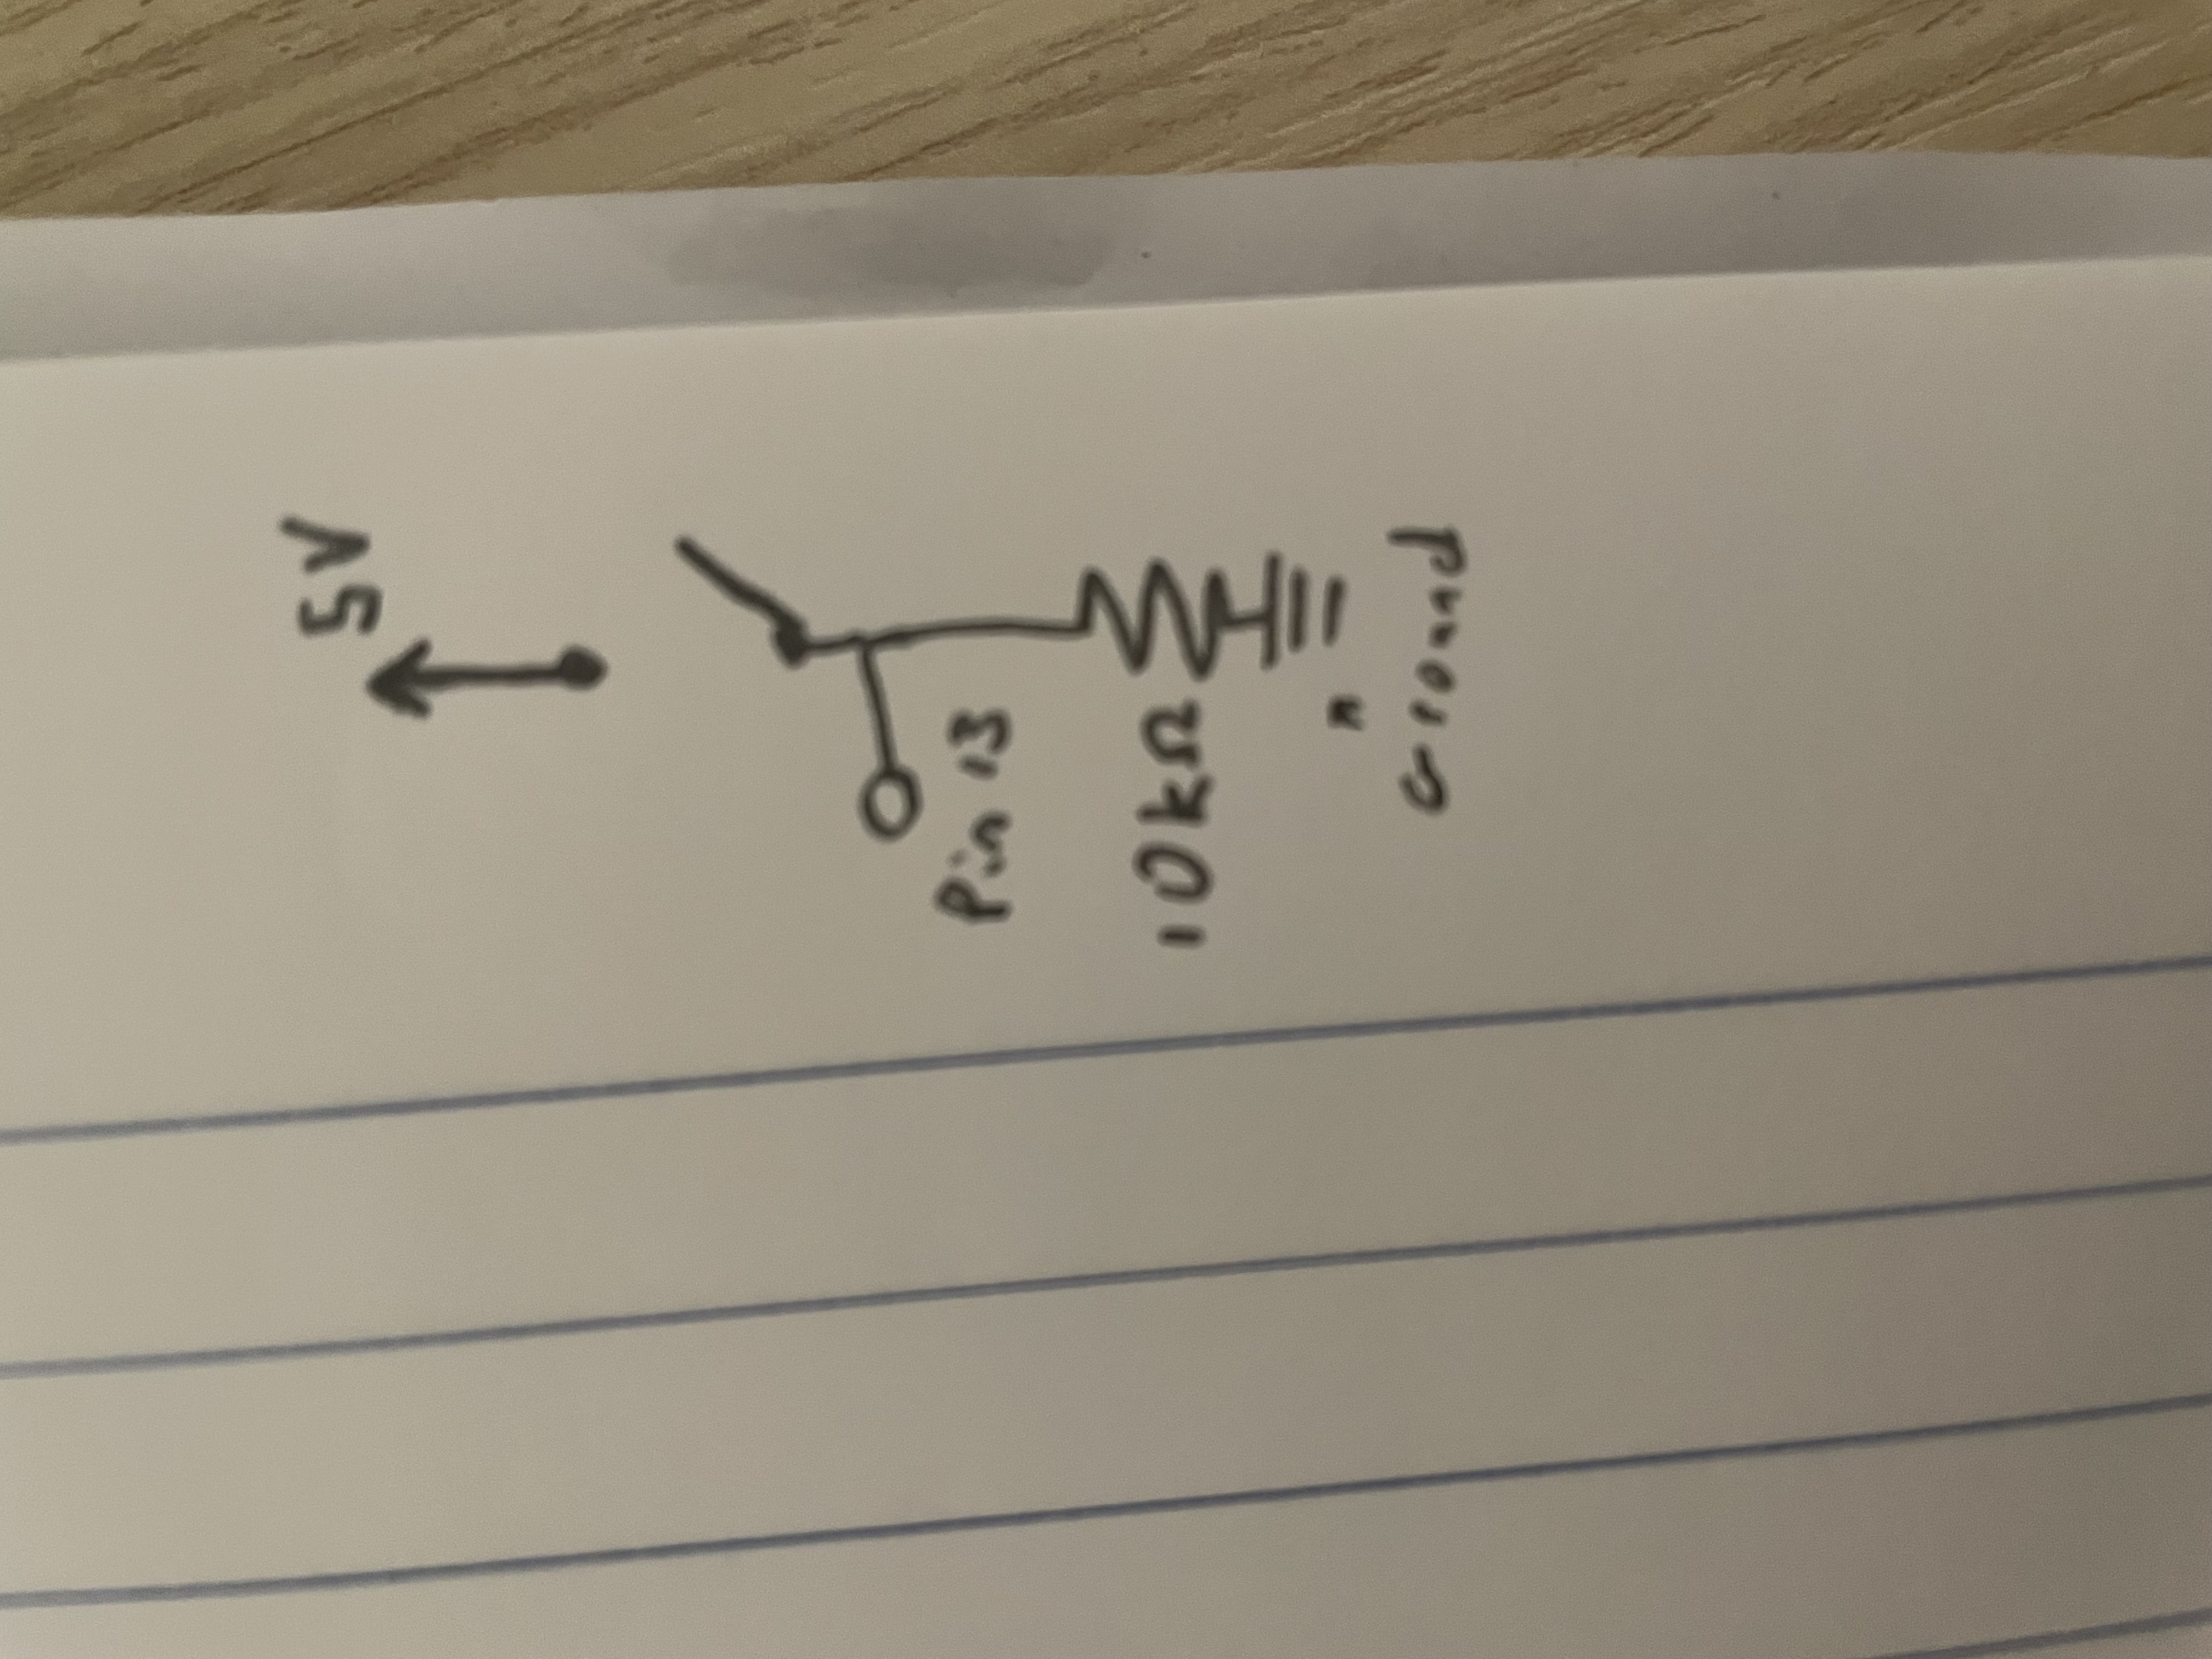 5V
Pin 13
10kΩ
Ground